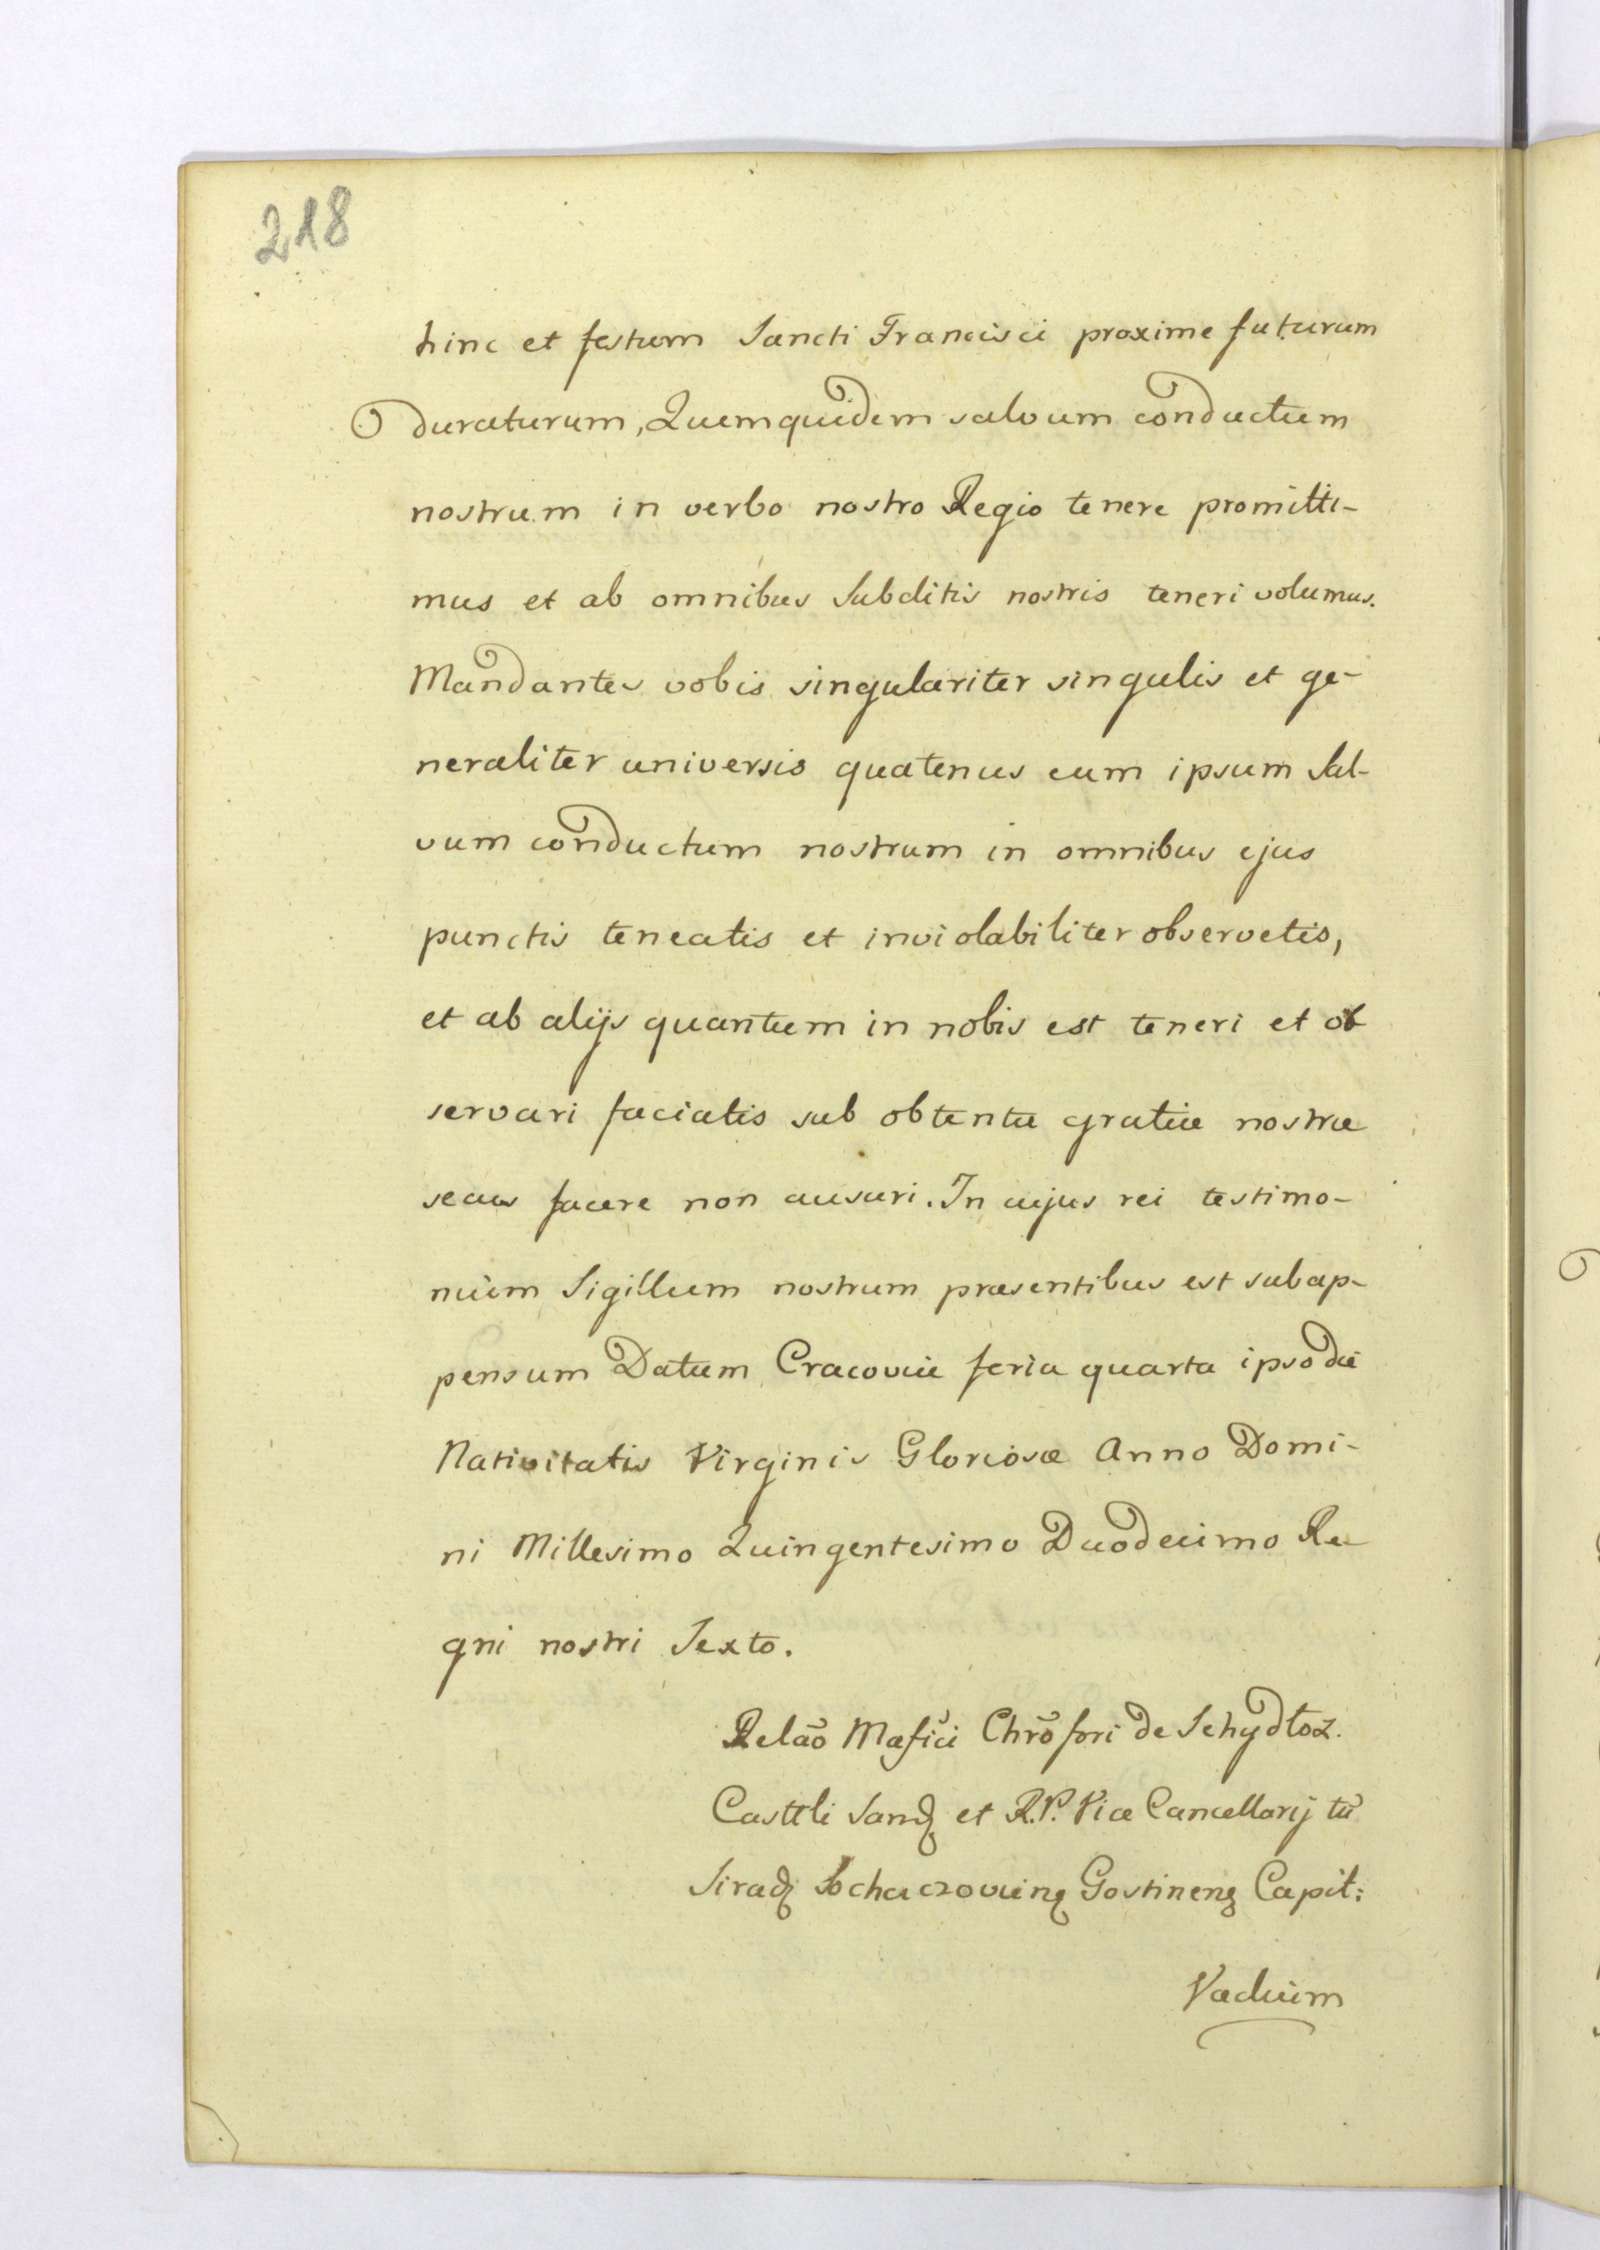 218
hinc et festum Sancti Francisci proxime futurum
duraturum, Quemquidem salvum conductum
nostrum in verbo nostro Regio tenere promitti-
mus et ab omnibus Subditis nostris teneri volumus.
Mandantes vobis singulariter singulis et ge-
neraliter universis quatenus eum ipsum Sal-
vum conductum nostrum in omnibus ejus
punctis teneatis et inviolabiliter observetis,
et ab alijs quantum in nobis est teneri et ob
servari faciatis sub obtentu gratiæ nostræ
secus facere non ausuri. In cujus rei testimo-
nium Sigillum nostrum præsentibus est subap-
pensum Datum Cracoviæ feria quarta ipso die
Nativitatis Virginis Gloriosæ Anno Domi-
ni Millesimo Quingentesimo Duodecimo Re-
gni nostri Sexto.
Relaõ Mafici Chrõfori de Schydłoz.
Casttli Sandʒ et R.P. Vice Cancellarij tũ
Siradʒ Sochaczovienʒ Gostinenʒ Capit:
Vadium